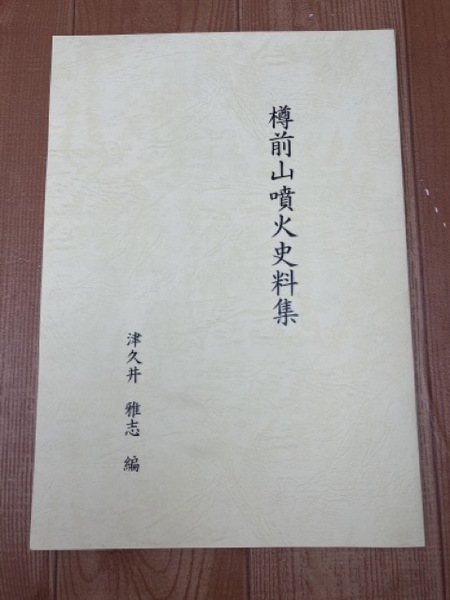 樽前山噴火史料集
津久井 雅志 編